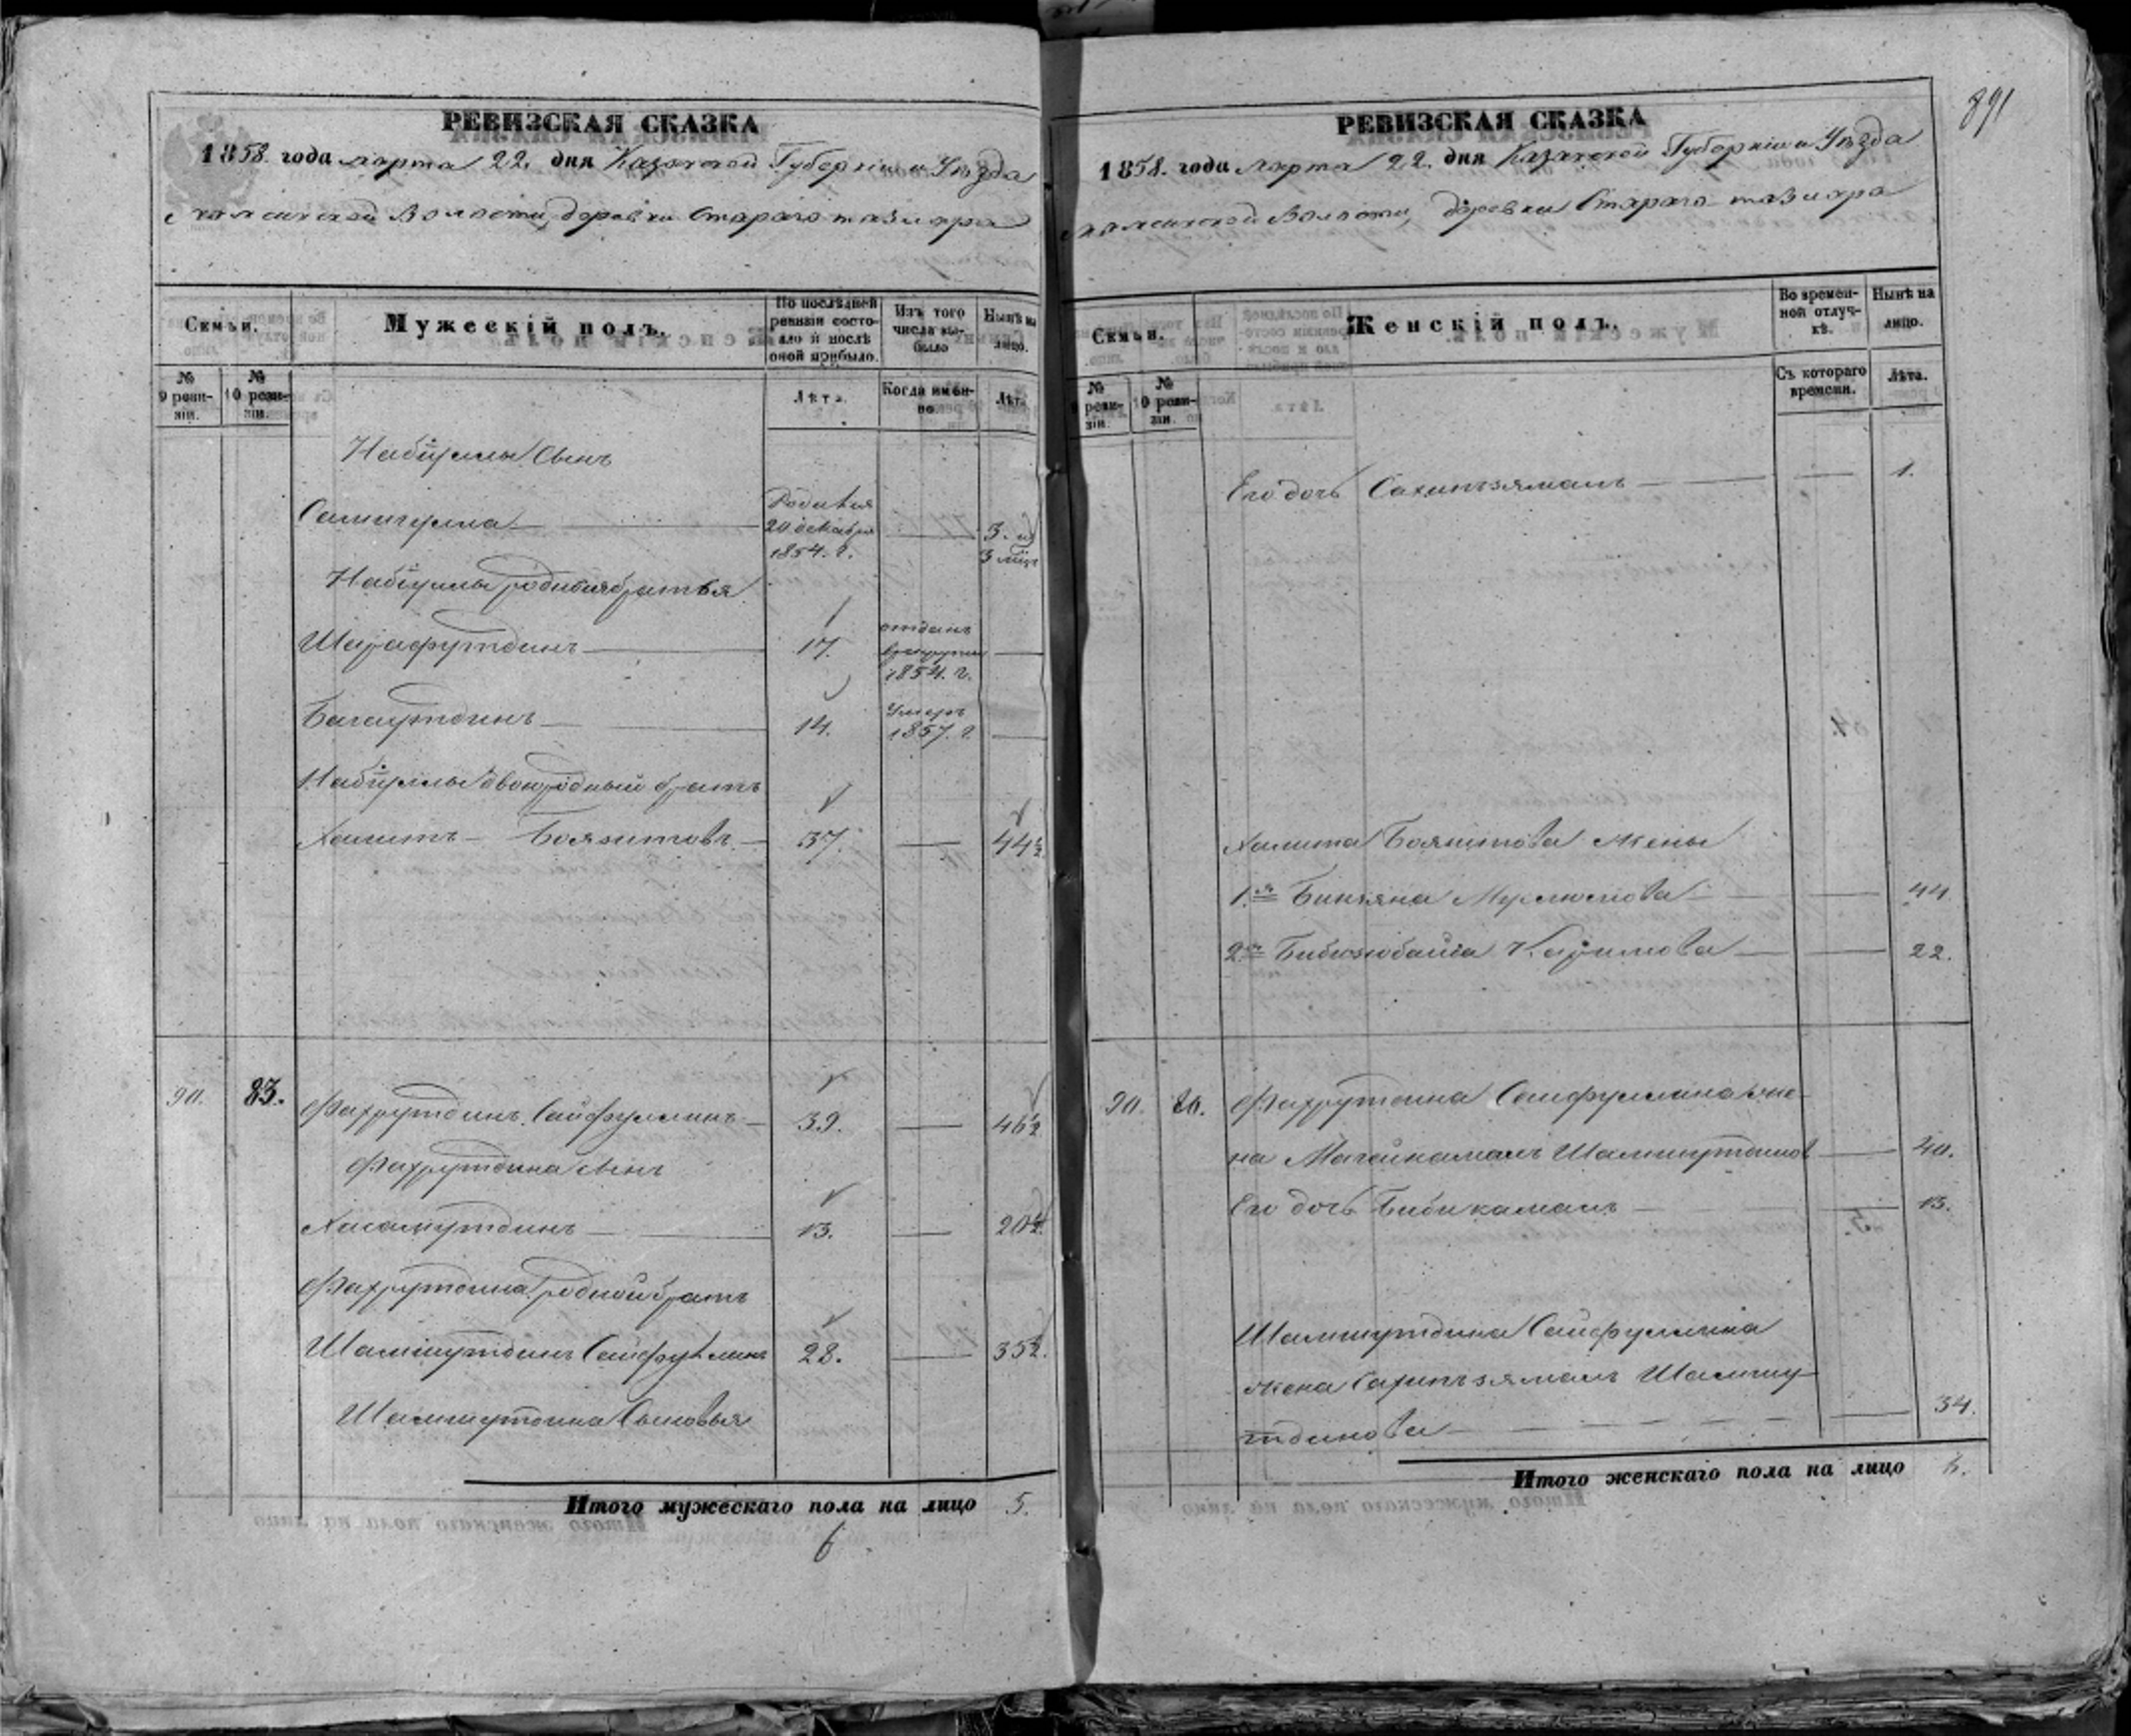 891
РЕВИЗСКАЯ СКАЗКА
1858. года марта 22. дня Казанской Губерніи и Уѣзда
волости, деревни Стараго
Семьи.
Мужескій полъ.
По послѣдней ревизіи состояло и послѣ оной прибыло.
Изъ того числа выбыло
Нынѣ на лицо.
№ 9 ревизіи.
№ 10 ревизіи.
Лѣта.
Когда именно
Лѣта
Набіуллы Сынъ
Самигулла
Родился
20 декабря
1854. г.
3. и
3 мѣс
Набіуллы родныя братья
Шарафутдинъ 17. отданъ
в рекруты
1854. г.
Багаутдинъ 14. Умеръ
1857. г.
Набіуллы двоюродный братъ
Хамитъ Боязитовъ 37. 44½
90. 83. Фахрутдинъ Сайфуллинъ 39. 46½
Фахрутдина сынъ
Хисамутдинъ 13. 20½.
Фахрутдина родной братъ
Шамшутдинъ Сайфуллинъ 28. 35½.
Шамшутдина Сыновья
Итого мужескаго пола на лицо 5.
6
РЕВИЗСКАЯ СКАЗКА
1858. года марта 22. дня Казанской Губерніи и Уѣзда
волости, деревни Стараго
Семьи.
Женскій полъ.
Во временной отлучкѣ.
Нынѣ на лицо.
№ 9 ревизіи.
№ 10 ревизіи.
Съ котораго времени.
Лѣта.
Его дочь Сахипъзямалъ 1.
Хамита Боязитова жены
1.я 44
2.я Каримова 22.
90. Фахрутдина Сайфуллина же-
на Шамшутдинов 40.
Его дочь Бибикамалъ 13.
Шамшутдина Сайфуллина
жена Сахипъзямалъ Шамшу-
тдинова 34.
Итого женскаго пола на лицо